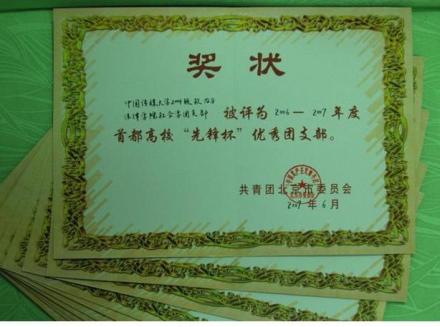 奖状
中国传媒大学2004级政治与
法律学院社会学团支部 被评为 2006—2007 年度
首都高校“先锋杯”优秀团支部。
共青团北京市委员会
2007年6月